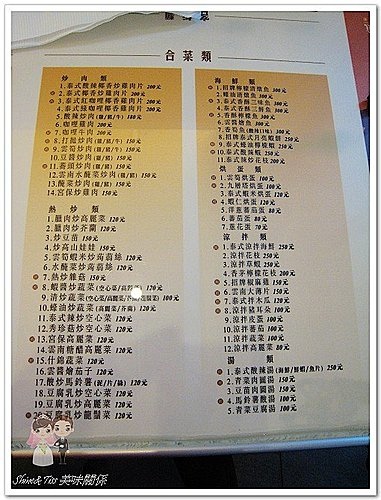 合菜類
炒肉類
1.泰式酸辣椰香炒雞肉片 200元
2.泰式椰香炒雞肉片 200元
3.泰式紅咖哩椰香雞肉片 200元
4.泰式綠咖哩椰香雞肉片 200元
5.酸辣炒肉(雞/豬/牛) 180元
6.咖哩雞肉 200元
7.咖哩牛肉 200元
8.打拋炒肉(雞/豬/牛) 150元
9.雲筍炒肉(雞/豬/牛) 150元
10.豆醬炒肉(雞/豬) 150元
11.蕎頭炒肉(雞/豬/牛) 150元
12.雲南水醃菜炒肉(雞/豬) 150元
13.醃菜炒肉(雞/豬) 150元
14.宮保炒雞肉 150元
熱炒類
1.臘肉炒高麗菜 120元
2.臘肉炒芥蘭 120元
3.炒豆苗 150元
4.炒高山娃娃 150元
5.雲筍蝦米炒蒟蒻絲 120元
6.水醃菜炒蒟蒻絲 120元
7.熱炒雞菇 150元
8.蝦醬炒蔬菜(空心菜/高麗菜) 120元
9.清炒蔬菜(空心菜/高麗菜/芥蘭/菠菜) 100元
10.蠔油炒蔬菜(高麗菜/芥蘭) 120元
11.泰式辣炒空心菜 120元
12.秀珍菇炒空心菜 120元
13.宮保高麗菜 120元
14.雲南糟醋高麗菜 120元
15.什錦蔬菜 120元
16.雲醬燴茄子 120元
17.酸炒馬鈴薯(泥/片/絲) 120元
18.豆腐乳炒空心菜 120元
19.豆腐乳炒高麗菜 120元
20.豆腐乳炒龍鬚菜 120元
海鮮類
1.招牌檸檬清燉魚 300元
2.蠔油清燉魚 300元
3.泰式香酥三味魚 300元
4.泰式香酥三鮮魚 300元
5.香酥檸檬魚 300元
6.雲醬燴魚 300元
8.招牌泰式月亮蝦餅 250元
9.泰式蠔油檸檬蝦 250元
10.泰式酸辣蝦 250元
11.泰式辣炒花枝 200元
烘蛋類
1.雲筍烘蛋 100元
2.九層塔烘蛋 100元
3.泰式蝦米烘蛋 120元
4.蝦仁烘蛋 120元
5.洋蔥蕃茄蛋 80元
6.蕃茄蛋 80元
7.蔥花蛋 70元
涼拌類
1.泰式涼拌海鮮 250元
2.涼拌花枝 250元
3.涼拌草蝦 250元
4.香茅檸檬花枝 200元
5.招牌椒麻雞 150元
6.雲南大薄片 150元
7.泰式拌木瓜 120元
8.涼拌豬耳朵 100元
9.涼拌皮蛋 100元
10.涼拌蕃茄 100元
11.涼拌蔬菜 100元
12.涼拌高麗菜 80元
湯類
1.泰式酸辣湯(海鮮/鮮蝦/魚片) 250元
2.青菜肉圓湯 150元
3.豆苗肉圓湯 150元
4.馬鈴薯酸湯 100元
5.青菜豆腐湯 100元
Shine & Tiss 美味關係